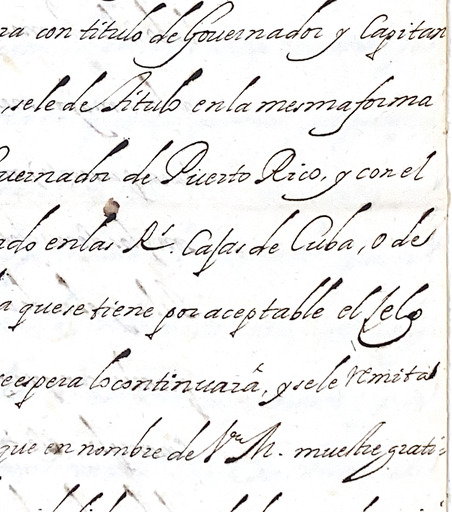 na con titulo de Governador y Capitan
, se le de Titulo en la mesma forma
vernador de Puerto Rico, y con el
ado en las R.ˢ Casas de Cuba, o del
a que se tiene por aceptable el selo
e espera lo continuará, y se le remita
que en nombre de V.ra M. muestre grati=